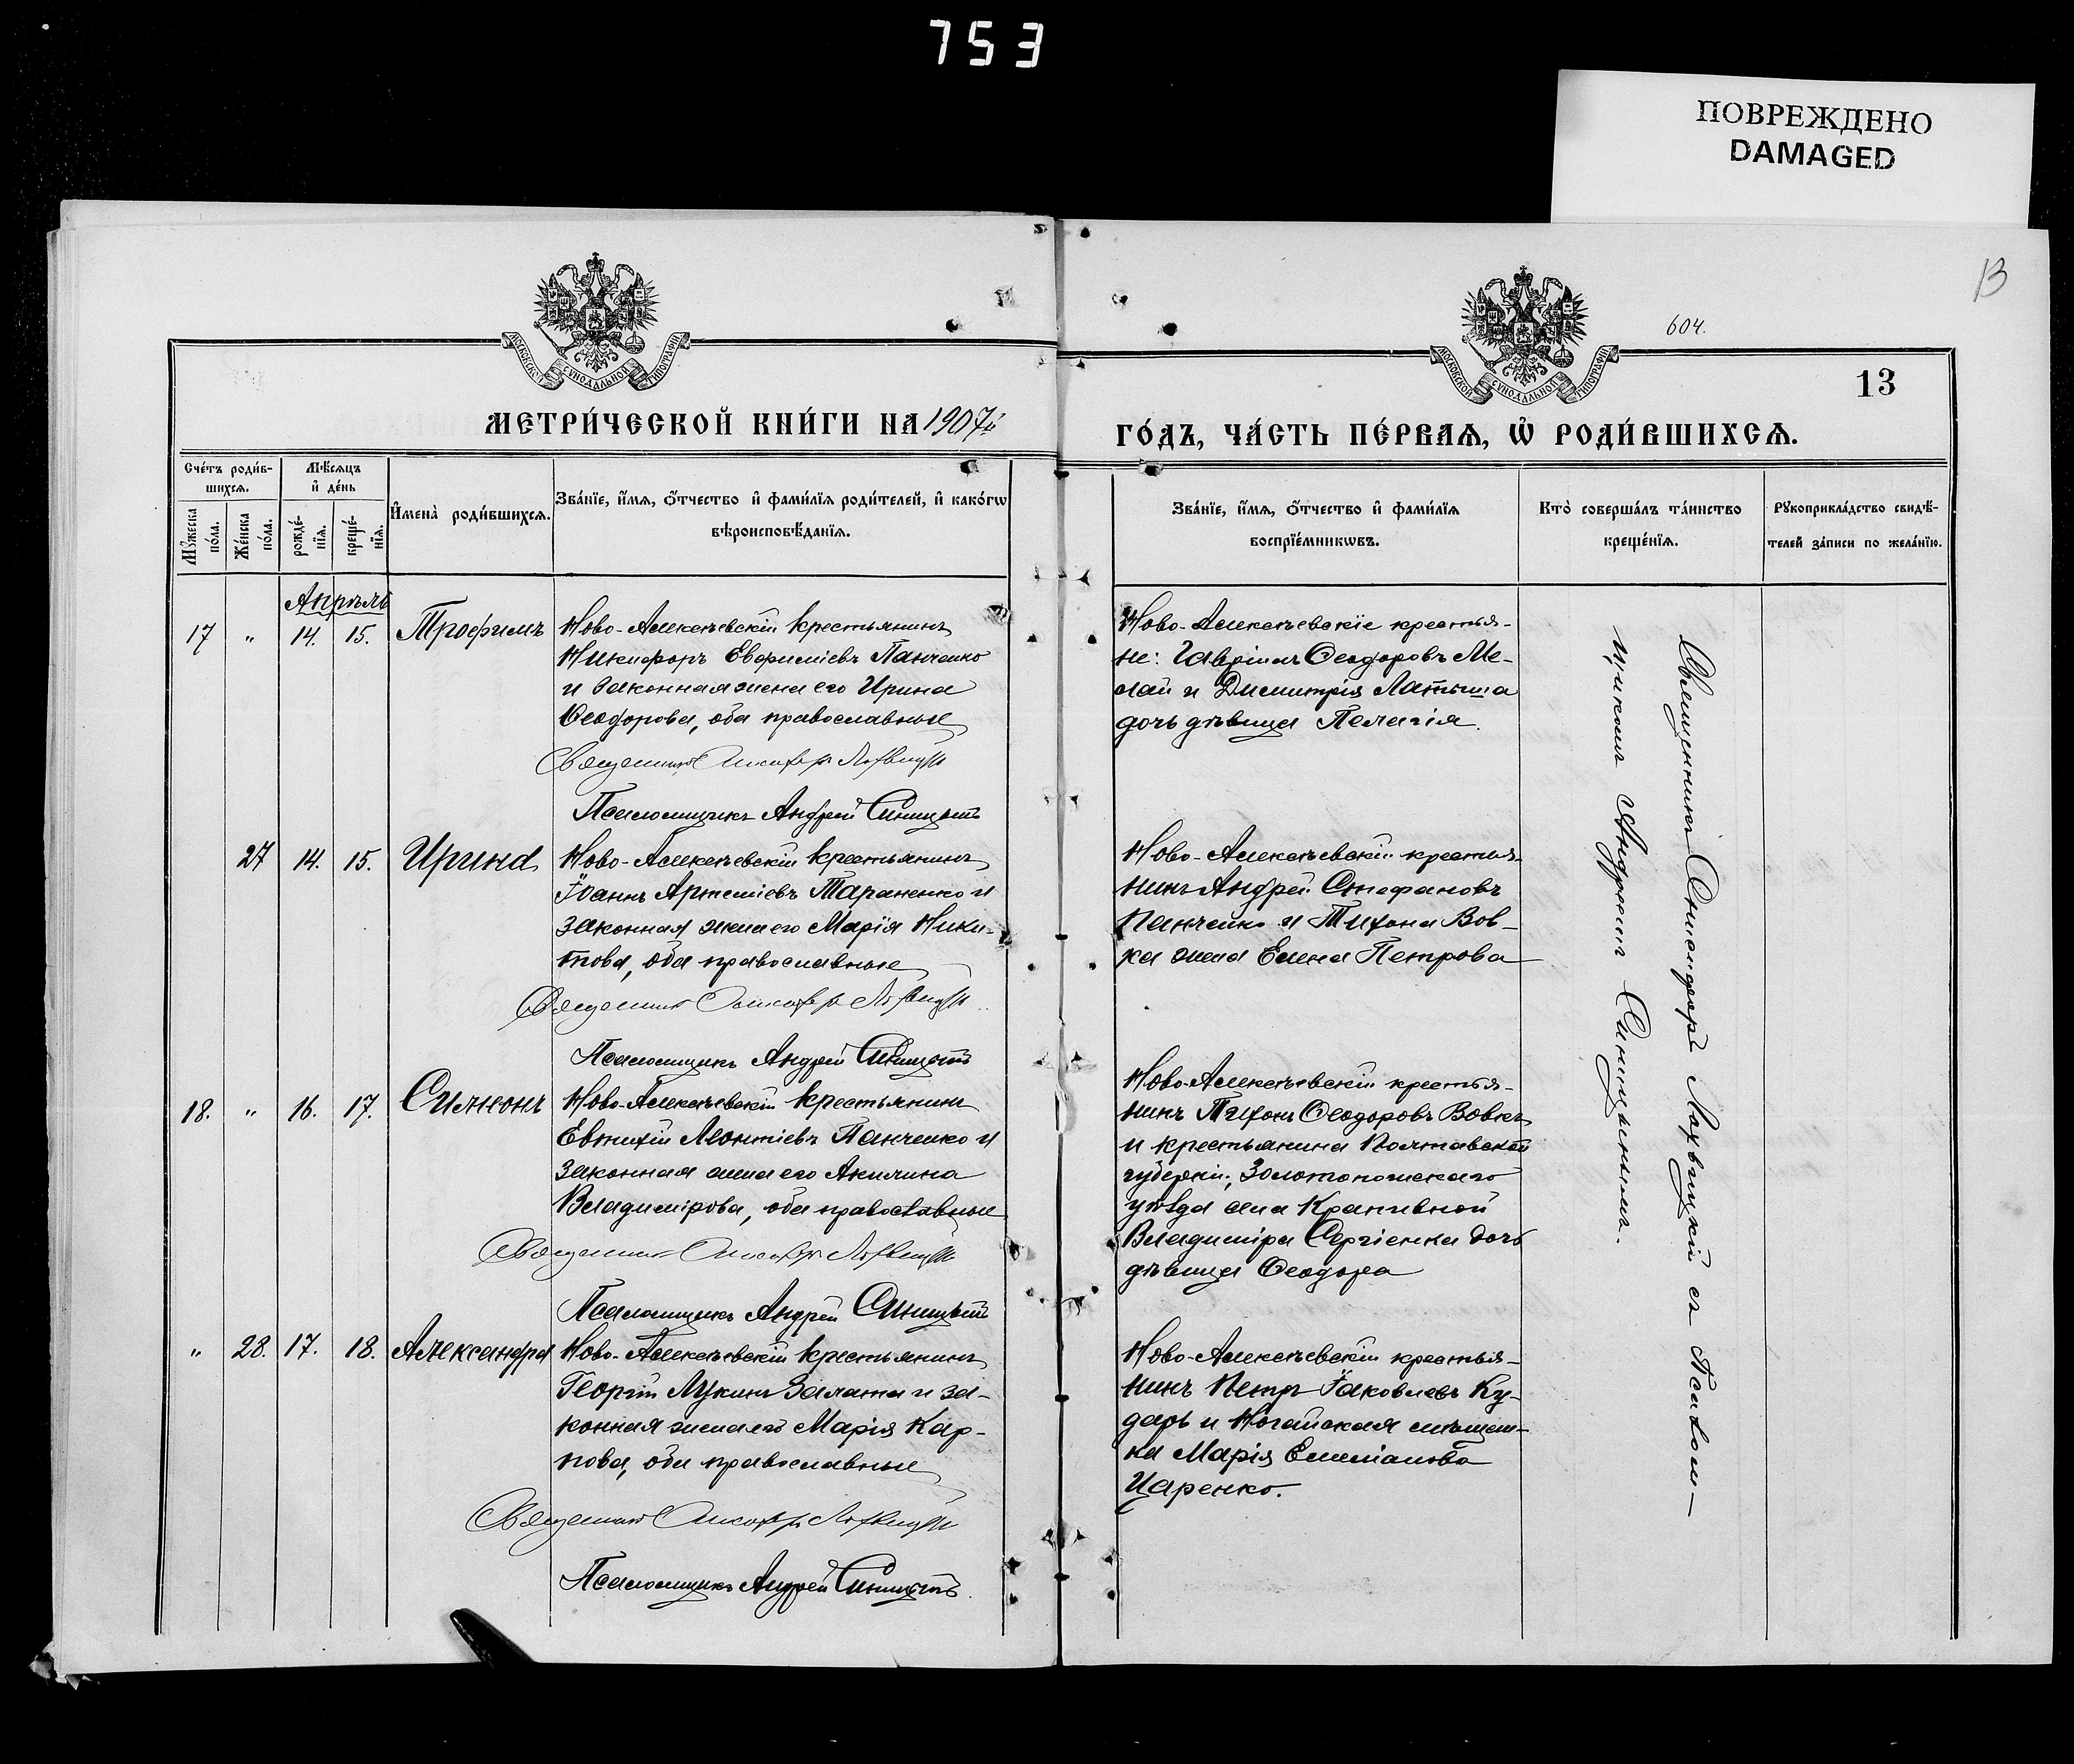 753
ПОВРЕЖДЕНО
DAMAGED
13
604.
МОСКОВСКОЙ СѴНОДАЛЬНОЙ ТИПОГРАФІИ
МОСКОВСКОЙ СѴНОДАЛЬНОЙ ТИПОГРАФІИ
13
МЕТРИ́ЧЕСКОЙ КНИ́ГИ НА 1907й
ГО́ДЪ, ЧА́СТЬ ПЕ́РВАѦ, Ѡ҆ РОДИ́ВШИХСѦ.
Сче́тъ роди́в-
шихсѧ.
Мѣ́сѧцъ
и҆ де́нь
Мꙋ́жеска по́ла.
Же́нска по́ла.
рожде́-
нїѧ.
креще́-
нїѧ.
И҆мена̀ роди́вшихсѧ.
Зва́нїе, и҆́мѧ, ѻ҆́тчество и҆ фами́лїѧ роди́телей, и҆ како́гѡ
вѣроисповѣ́данїѧ.
Зва́нїе, и҆́мѧ, ѻ҆́тчество и҆ фами́лїѧ
воспрїе́мникѡвъ.
Кто̀ соверша́лъ та́инство
креще́нїѧ.
Рꙋкоприкла́дство свидѣ́-
телей за́писи по жела́нїю.
Апрѣль
17 " 14. 15. Трофимъ
Ново-Алексѣевскій крестьянинъ
Никифоръ Евфиміевъ Панченко
и законная жена его Ирина
Ѳеодорова, оба православные
Священникъ Лохвицкій
Псаломщикъ Андрей Синицынъ
Ново-Алексѣевскіе крестья-
не: Гавріилъ Ѳеодоровъ Ме-
лай и Димитрія Латыша
дочь дѣвица Пелагія.
27 14. 15. Ирина
Ново-Алексѣевскій крестьянинъ
Іоаннъ Артеміевъ Тараненко и
законная жена его Марія Ники-
това, оба православные
Священникъ Лохвицкій
Псаломщикъ Андрей Синицынъ
Ново-Алексѣевскій крестья-
нинъ Андрей Стефановъ
Панченко и Тихона Вов-
ка жена Елена Петрова
18. " 16. 17. Симеонъ
Ново-Алексѣевскій крестьянинъ
Евтихій Леонтіевъ Панченко и
законная жена его Акилина
Владимірова, оба православные
Священникъ Лохвицкій
Псаломщикъ Андрей Синицынъ
Ново-Алексѣевскій крестья-
нинъ Тихонъ Ѳеодоровъ Вовкъ
и крестьянина Полтавской
губерніи, Золотоношскаго
уѣзда села Крапивной
Владиміра Сергіенка дочь
дѣвица Ѳеодора
" 28. 17. 18. Александра
Ново-Алексѣевскій крестьянинъ
Георгій Лукинъ Залата и за-
конная жена его Марія Кар-
пова, оба православные
Священникъ Лохвицкій
Псаломщикъ Андрей Синицынъ
Ново-Алексѣевскій крестья-
нинъ Петръ Іаковлевъ Ку-
дарь и Ногайская мѣщан-
ка Марія Емеліанова
Царенко.
Священникъ Лохвицкій съ Псалом-
щикомъ Андреемъ Синицынымъ.